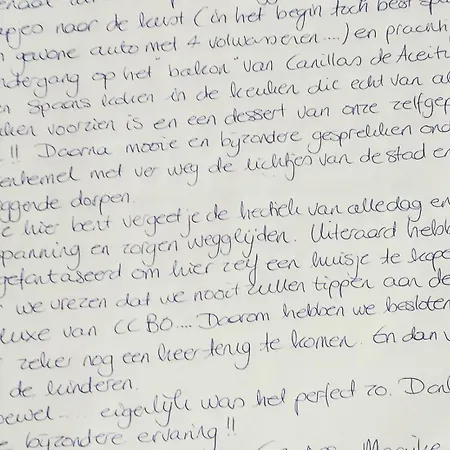 pjes naar de kust (in het begin toch best sp
gewone auto met 4 volwassenen....) en pracht
ndergang op het "balcon" van Canillas de Aceitu
n Spaans koken in de keuken die echt van al
ken voorzien is en een dessert van onze zelfgep
!! Daarna mooie en bijzondere gesprekken ond
enhemel met ver weg de lichtjes van de stad en
ggende dorpen.
e hier bent vergeet je de hectiek van alledag en
panning en zorgen wegglijden. Uiteraard hebb
gefantaseerd om hier zelf een huisje te kope
we vrezen dat we nooit zullen tippen aan de
luxe van CCBO.... Daarom hebben we besloten
zeker nog een keer terug te komen. En dan
de kinderen.
oewel .... eigenlijk was het perfect zo. Dank
e bijzondere ervaring!!